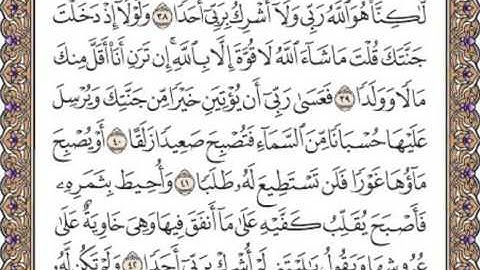 لَّٰكِنَّا۠ هُوَ ٱللَّهُ رَبِّى وَلَآ أُشْرِكُ بِرَبِّىٓ أَحَدًا ٣٨ وَلَوْلَآ إِذْ دَخَلْتَ
جَنَّتَكَ قُلْتَ مَا شَآءَ ٱللَّهُ لَا قُوَّةَ إِلَّا بِٱللَّهِ ۚ إِن تَرَنِ أَنَا۠ أَقَلَّ مِنكَ
مَالًا وَوَلَدًا ٣٩ فَعَسَىٰ رَبِّىٓ أَن يُؤْتِيَنِ خَيْرًا مِّن جَنَّتِكَ وَيُرْسِلَ
عَلَيْهَا حُسْبَانًا مِّنَ ٱلسَّمَآءِ فَتُصْبِحَ صَعِيدًا زَلَقًا ٤٠ أَوْ يُصْبِحَ
مَآؤُهَا غَوْرًا فَلَن تَسْتَطِيعَ لَهُۥ طَلَبًا ٤١ وَأُحِيطَ بِثَمَرِهِۦ
فَأَصْبَحَ يُقَلِّبُ كَفَّيْهِ عَلَىٰ مَآ أَنفَقَ فِيهَا وَهِىَ خَاوِيَةٌ عَلَىٰ
عُرُوشِهَا وَيَقُولُ يَٰلَيْتَنِى لَمْ أُشْرِكْ بِرَبِّىٓ أَحَدًا ٤٢ وَلَمْ تَكُن لَّهُۥ